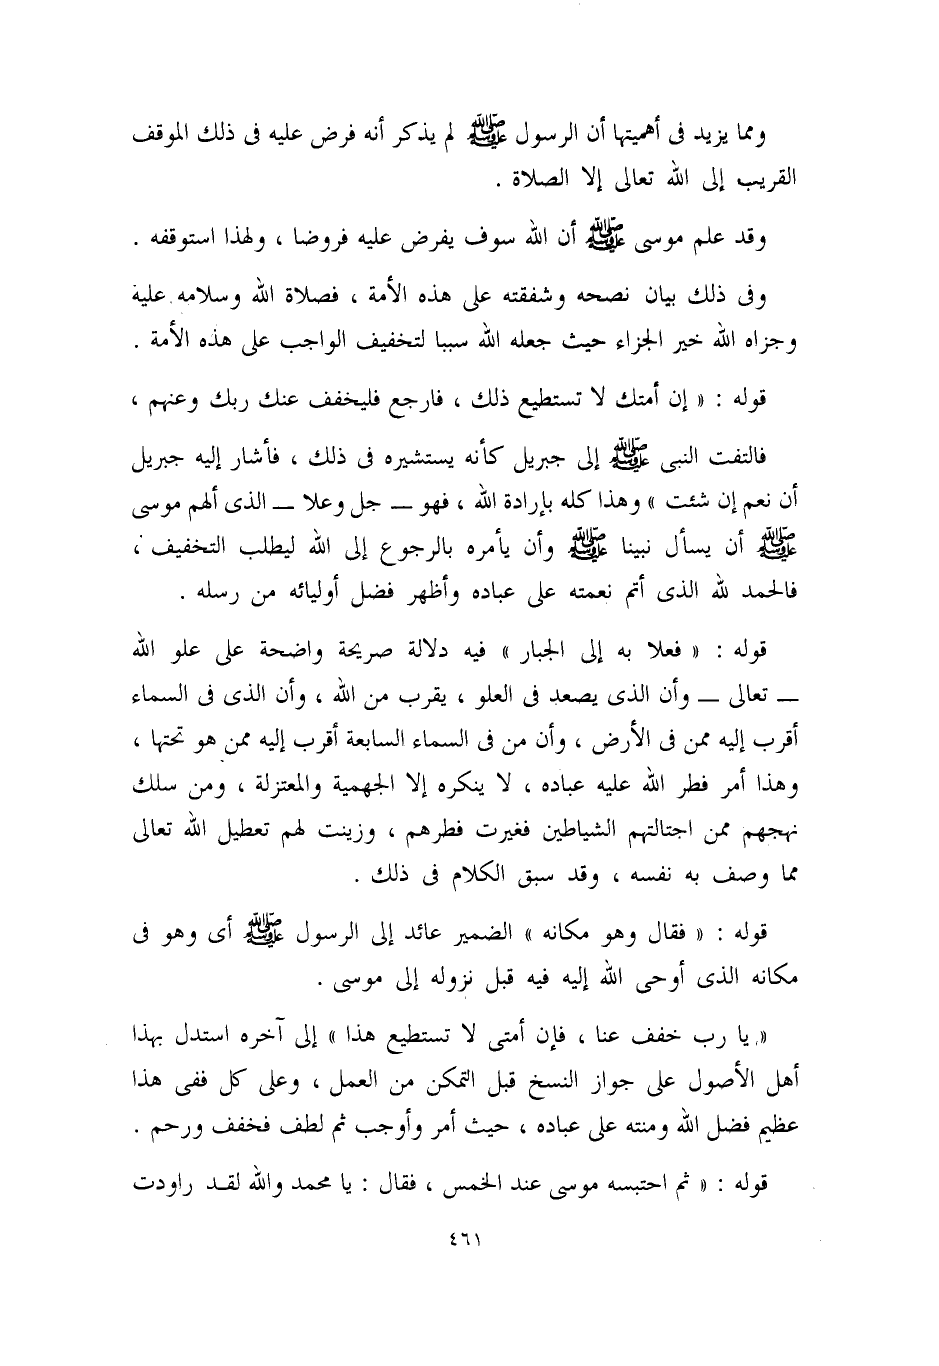 ومما يزيد فى أهميتها أن الرسول ﷺ لم يذكر أنه فرض عليه فى ذلك الموقف
القريب إلى الله تعالى إلا الصلاة .
وقد علم موسى ﷺ أن الله سوف يفرض عليه فروضا ، ولهذا استوقفه .
وفى ذلك بيان نصحه وشفقته على هذه الأمة ، فصلاة الله وسلامه علية
وجزاه الله خير الجزاء حيث جعله الله سببا لتخفيف الواجب على هذه الأمة .
قوله : « إن أمتك لا تستطيع ذلك ، فارجع فليخفف عنك ربك وعنهم ،
فالتفت النبى ﷺ إلى جبريل كأنه يستشيره فى ذلك ، فأشار إليه جبريل
أن نعم إن شئت » وهذا كله بإرادة الله ، فهو ــ جل وعلا ــ الذى ألهم موسى
ﷺ أن يسأل نبينا ﷺ وأن يأمره بالرجوع إلى الله ليطلب التخفيف ،
فالحمد لله الذى أتم نعمته على عباده وأظهر فضل أوليائه من رسله .
قوله : « فعلا به إلى الجبار » فيه دلالة صريحة واضحة على علو الله
ــ تعالى ــ وأن الذى يصعد فى العلو ، يقرب من الله ، وأن الذى فى السماء
أقرب إليه ممن فى الأرض ، وأن من فى السماء السابعة أقرب إليه ممن هو تحتها ،
وهذا أمر فطر الله عليه عباده ، لا ينكره إلا الجهمية والمعتزلة ، ومن سلك
نهجهم ممن اجتالتهم الشياطين فغيرت فطرهم ، وزينت لهم تعطيل الله تعالى
مما وصف به نفسه ، وقد سبق الكلام فى ذلك .
قوله : « فقال وهو مكانه » الضمير عائد إلى الرسول ﷺ أى وهو فى
مكانه الذى أوحى الله إليه فيه قبل نزوله إلى موسى .
« يا رب خفف عنا ، فإن أمتى لا تستطيع هذا » إلى آخره استدل بهذا
أهل الأصول على جواز النسخ قبل التمكن من العمل ، وعلى كل ففى هذا
عظيم فضل الله ومنته على عباده ، حيث أمر وأوجب ثم لطف فخفف ورحم .
قوله : « ثم احتبسه موسى عند الخمس ، فقال : يا محمد والله لقد راودت
٤٦١